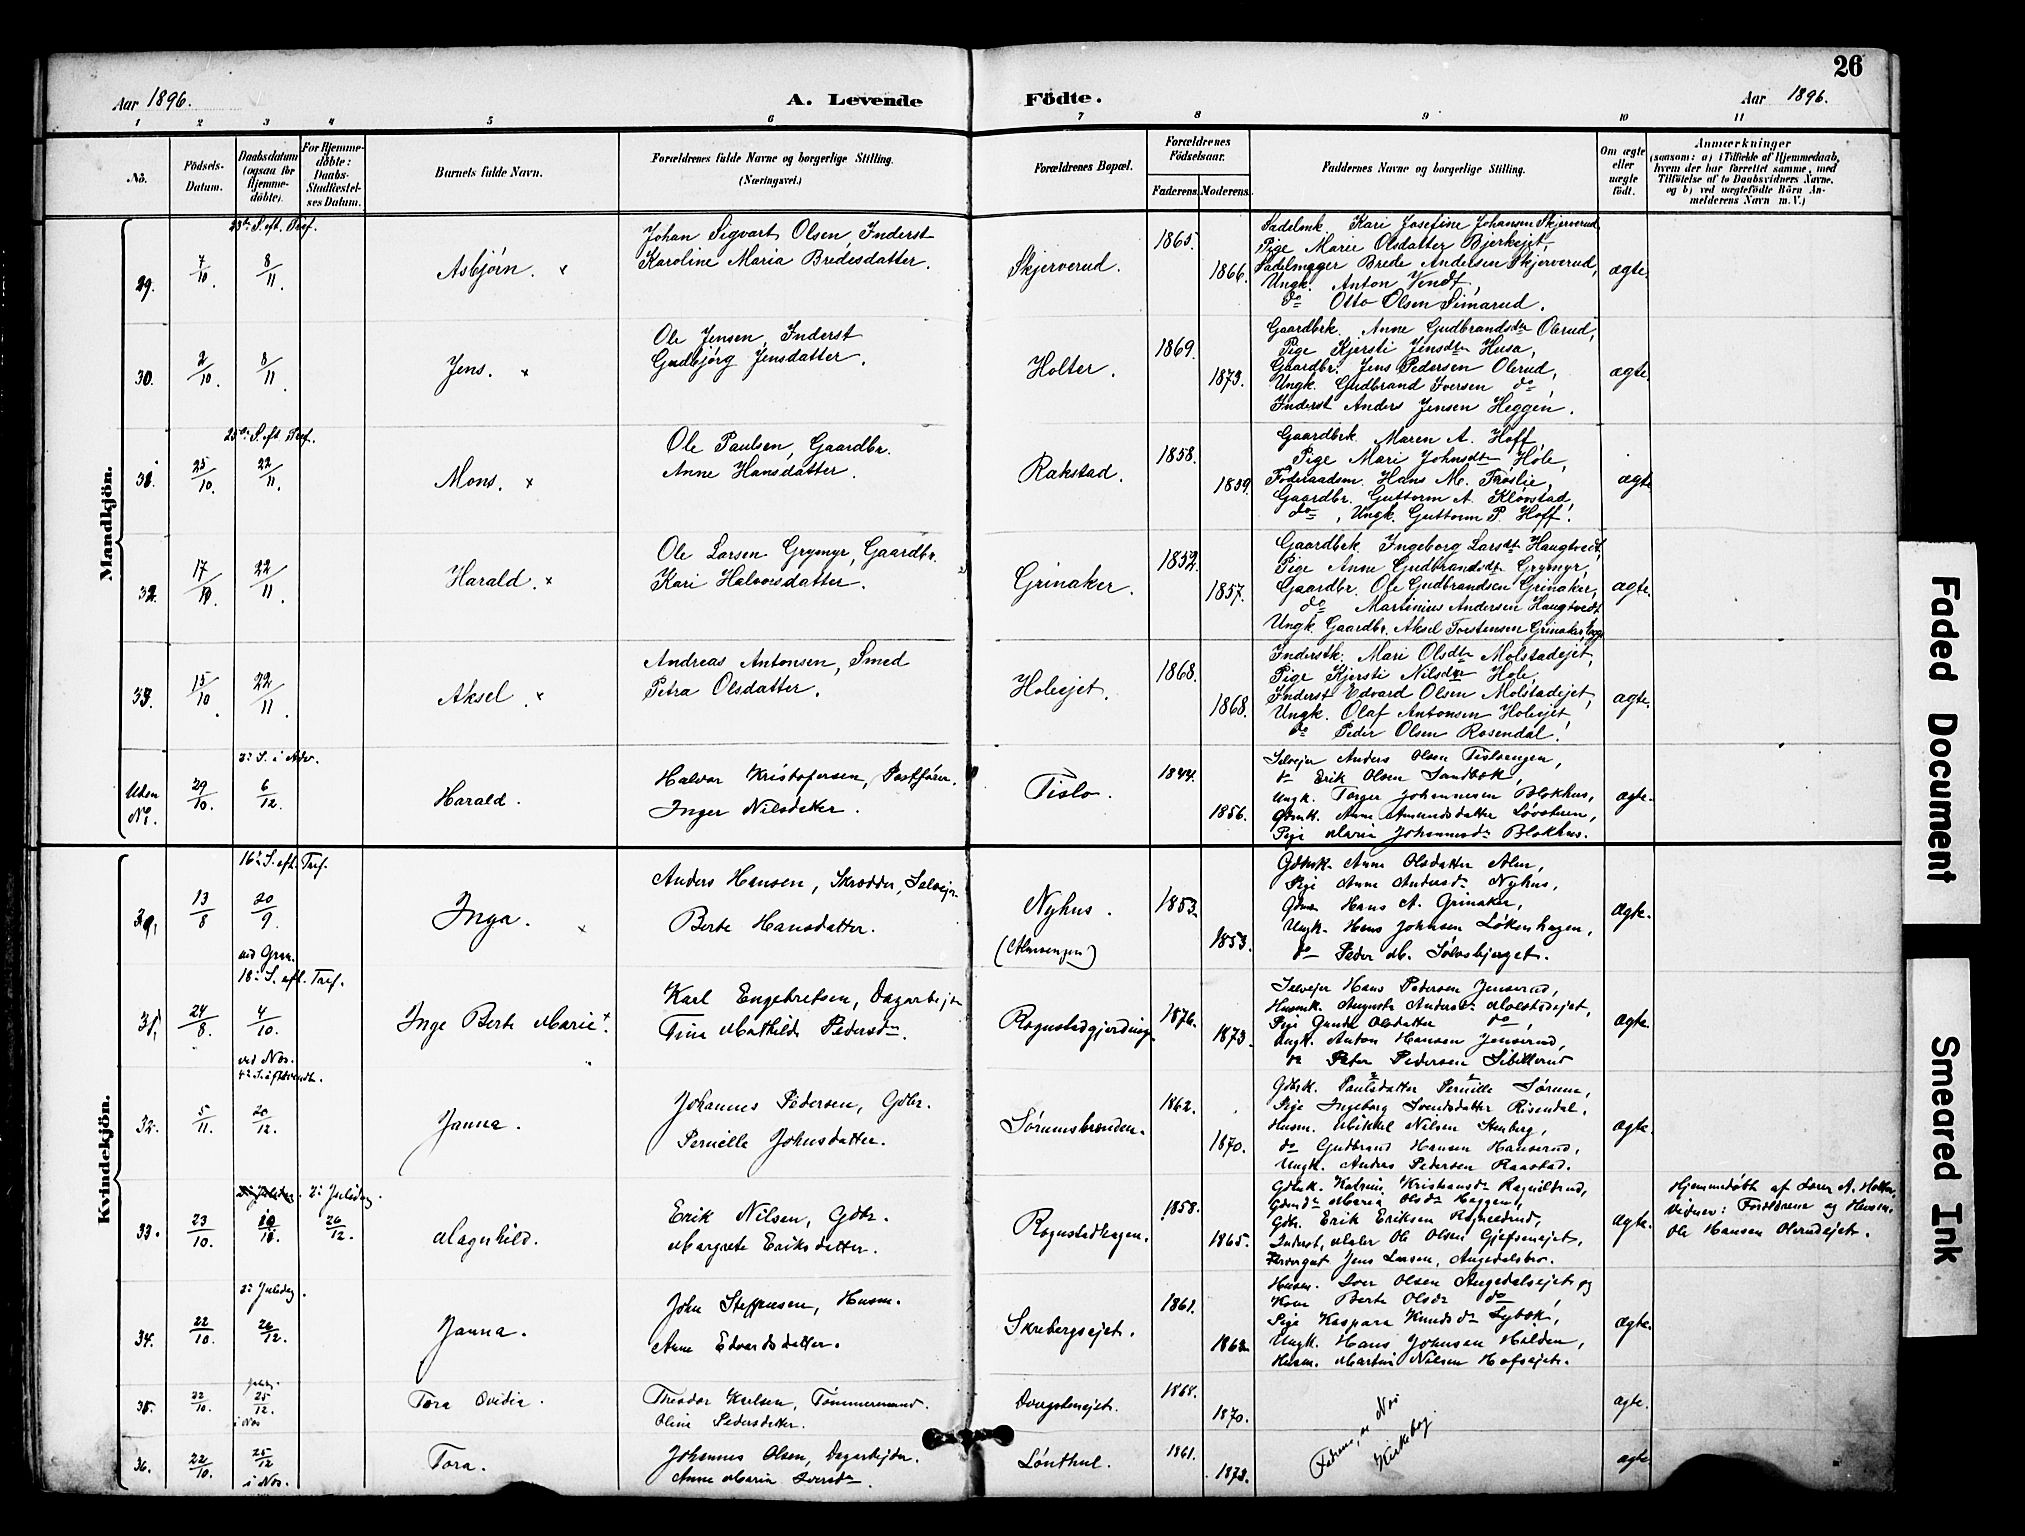 26
Aar 1896.
A. Levende Födte.
Aar 1896.
1 2 3 4 5 6 7 8 9 10 11
No.
Födsels-Datum.
Daabsdatum (ogsaa for Hjemme-döbte).
For Hjemme-döbte: Daabs-Stadfæstel-ses Datum.
Barnets fulde Navn.
Forældrenes fulde Navne og borgerlige Stilling.
(Næringsvei.)
Forældrenes Bopæl.
Forældrenes Födselsaar.
Faderens. Moderens.
Faddernes Navne og borgerlige Stilling.
Om ægte eller uægte födt.
Anmærkninger
(saasom: a) i Tilfælde af Hjemmedaab,
hvem der har forrettet samme, med
Tilföielse af to Daabsvidners Navne,
og b) ved uægtefödte Börn An-
melderens Navn m. V.)
Mandkjön.
23de S. eft. Tref.
29. 7/10. 8/11. Asbjørn. x
Johan Sigvart Olsen, Inderst
Karoline Maria Bredesdatter.
Skjerverud. 1865. 1866.
Sadelmk. Kari Josefine Johansen Skjerverud,
Pige Marie Olsdatter Bjerkejet,
Sadelmager Brede Andersen Skjerverud,
Ungk. Anton Vendt,
do Otto Olsen Simarud.
ægte.
30. 2/10. 8/11. Jens. x
Ole Jensen, Inderst
Gudbjørg Jensdatter.
Holter. 1869. 1873.
Gaardbrk. Anne Gudbrandsdtr Olerud,
Pige Kjersti Jensdtr Husa,
Gaardbr. Jens Pedersen Olerud,
Ungk. Gudbrand Iversen do,
Inderst Anders Jensen Heggen.
ægte.
25de S. eft. Tref.
31. 25/10. 22/11. Mons. x
Ole Paulsen, Gaardbr.
Anne Hansdatter.
Rakstad. 1858. 1859.
Gaardbrk. Maren A. Hoff,
Pige Mari Johnsdtr Hole,
Føderaadsm. Hans M. Frøslie,
Gaardbr. Guttorm A. Kløvstad,
do, Ungk. Guttorm P. Hoff.
ægte
32. 17/10 22/11. Harald. x
Ole Larsen Grymyr, Gaardbr.
Kari Halvorsdatter.
Grinaker. 1852. 1857.
Gaardbrk. Ingeborg Larsdtr Haugtvedt,
Pige Anne Gudbrandsdtr Grymyr,
Gaardbr. Ole Gudbrandsen Grinaker,
do Martinius Andersen Haugtvedt
Ungk. Gaardbr. Aksel Torstensen Grinaker
ægte.
33. 15/10. 22/11. Aksel. x
Andreas Antonsen, Smed
Petra Olsdatter.
Holeejet. 1868. 1868.
Inderstk. Mari Olsdtr Molstadejet,
Pige Kjersti Nilsdtr Hole,
Inderst Edvard Olsen Molstadejet,
Ungk. Olaf Antonsen Holeejet,
do Peder Olsen Rosendal.
ægte.
2. S. i Adv.
Uden No. 29/10. 6/12. Harald.
Halvor Kristofersen, Postfører.
Inger Nilsdatter.
Tislo. 1844. 1856.
Selvejer Anders Olsen Tisloengen,
do Erik Olsen Sandbæk,
Ungk. Torger Johannesen Blokhus,
Gbrk. Anne Amundsdatter Løvstuen,
Pige Maria Johannesdr Blokhus.
ægte.
Kvindekjön.
16de S. eft. Tref.
30. 13/8 20/9. Inga. x
ved Gran.
Anders Hansen, Skrædder, Selvejer
Berte Hansdatter.
Nyhus. (Almsengen) 1853. 1853.
Gdbrk. Anne Olsdatter Alm,
Pige Anne Andersdr Nyhus,
Gdbr. Hans A. Grinaker,
Ungk. Hans Johnsen Løkenhagen,
do Peder M. Sølvsbjerget.
ægte.
18de S. eft. Tref.
31. 24/8. 4/10. Inge Berte Marie +.
ved Nes.
Karl Engebretsen, Dagarbejder
Trine Mathilde Pedersdr.
Rognstadgjerdingen. 1876. 1873.
Selvejer Hans Pedersen Jenserud,
Husmk. Auguste Andersdr Molstadejet,
Pige Gunda Olsdatter do,
Ungk. Anton Hansen Jenserud,
do Peter Pedersen Sibillerud
ægte.
4de S. i Advendt.
32. 5/11. 20/12. Janna.
Johannes Pedersen, Gdbr.
Pernille Johnsdatter.
Sørumsbrenden. 1862. 1870.
Gdbrk. Paulsdatter Pernille Sørum,
Pige Ingeborg Svendsdatter Risendal,
Husm. Mikkel Nilsen Stenberg,
do Gudbrand Hansen Hanserud,
Ungk. Anders Pedersen Raastad.
ægte.
2. Juledag.
33. 23/10. 26/12. Magnhild.
Erik Nilsen, Gdbr.
Margrete Eriksdatter.
Rognstadhagen. 1858. 1865.
Gdbrk. Katrine Kristiansdr Ragnildrud,
Maria Olsdr Haggen,
Gdbr. Erik Eriksen Ragnildrud,
Inderst, Maler Ole Olsen Gjefsenejet,
Jens Larsen, Angedalsbro.
ægte.
Hjemmedøbt af Lærer A. Holter,
Vidner: Forældrene og Husm.
Ole Hansen Olerudejet.
2. Juledag.
34. 22/10. 26/12. Janna.
John Steffensen, Husm.
Anne Edvardsdatter.
Skrebergsejet. 1861. 1862
Husm. Iver Olsen Angedalsejet og
Kone Berte Olsdr do,
Pige Kaspara Knudsdr Lybæk,
Ungk. Hans Johnsen Halden,
Husm. Martin Nilsen Hofsejet.
ægte.
35. 22/10. 25/12. Tora Ovidia.
i Nes
Theodor Karlsen, Tømmermand.
Oline Pedersdatter.
Dvergstenejet. 1868. 1870.
ægte.
Fadrene, se Nes Kirkebog.
36. 22/10. 25/12 Tora.
i Nes.
Johannes Olsen, Dagarbejder.
Anne Maria Iversdr
Lønthul. 1861. 1873.
ægte
Faded Document
Smeared Ink